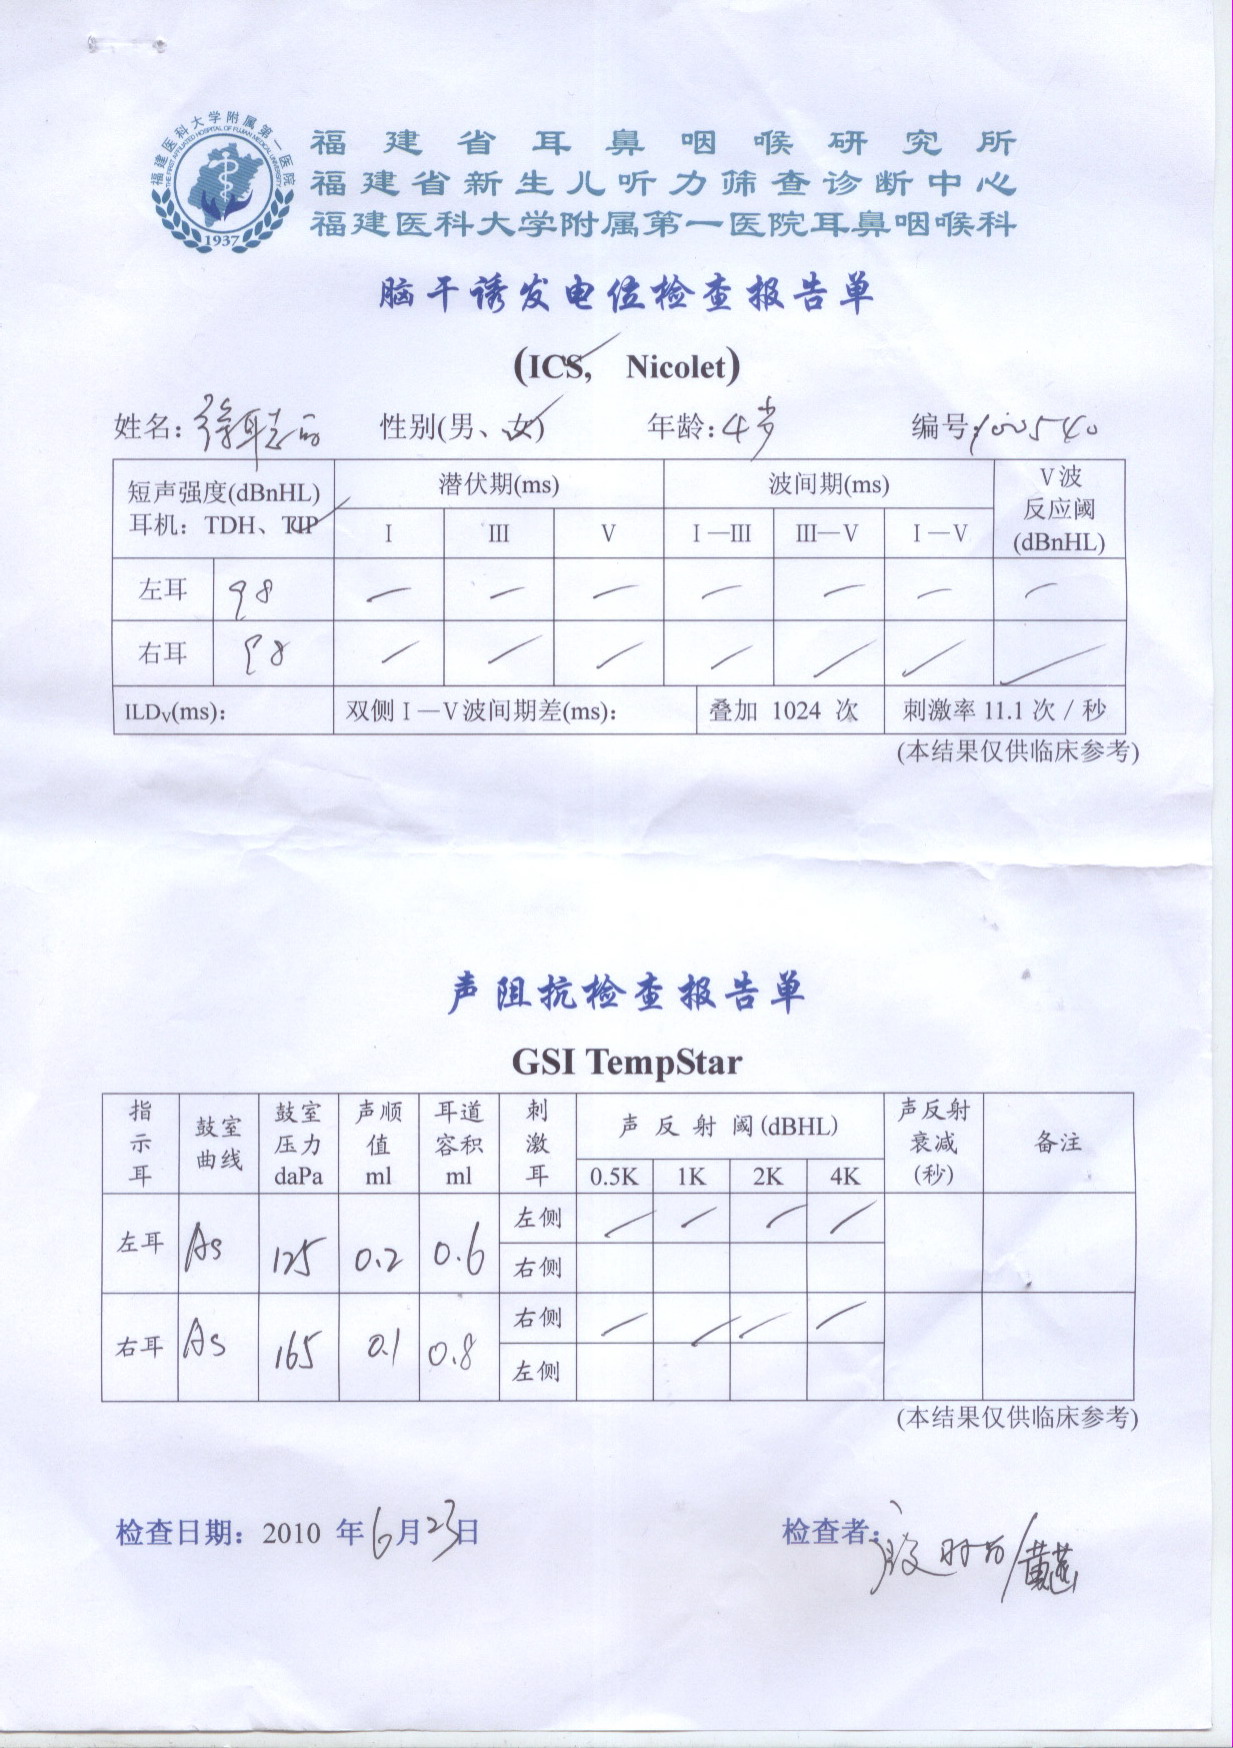 福建医科大学附属第一医院
THE FIRST AFFILIATED HOSPITAL OF FUJIAN MEDICAL UNIVERSITY
1937
福建省耳鼻咽喉研究所
福建省新生儿听力筛查诊断中心
福建医科大学附属第一医院耳鼻咽喉科
脑干诱发电位检查报告单
(ICS, Nicolet)
姓名: 性别(男、女) 年龄:4岁 编号:100540
短声强度(dBnHL) 潜伏期(ms) 波间期(ms) V波
耳机: TDH、TIP Ⅰ Ⅲ Ⅴ Ⅰ—Ⅲ Ⅲ—Ⅴ Ⅰ—Ⅴ 反应阈
(dBnHL)
左耳 98 — — — — — — —
右耳 98 — — — — — — —
ILDv(ms): 双侧Ⅰ—Ⅴ波间期差(ms): 叠加 1024 次 刺激率 11.1 次 / 秒
(本结果仅供临床参考)
声阻抗检查报告单
GSI TempStar
指示耳 鼓室曲线 鼓室压力daPa 声顺值ml 耳道容积ml 刺激耳 声反射阈(dBHL) 声反射衰减(秒) 备注
0.5K 1K 2K 4K
左耳 As 125 0.2 0.6 左侧 / / / /
右侧
右耳 As 165 0.1 0.8 右侧 / / / /
左侧
(本结果仅供临床参考)
检查日期: 2010 年6月23日 检查者: